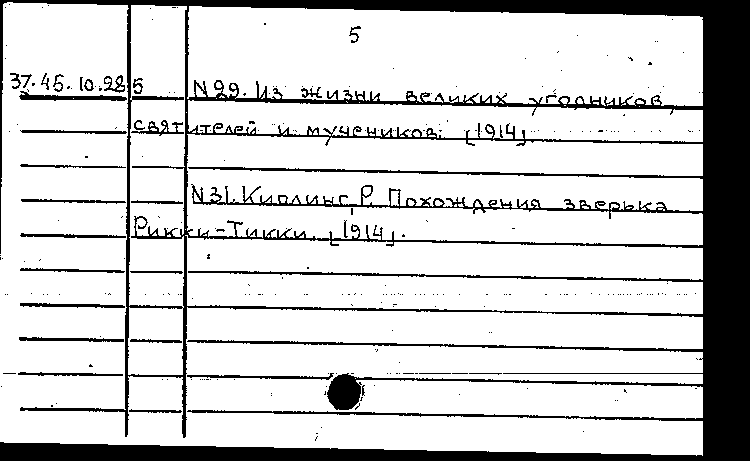 5
37.45.10.285 N29. Из жизни великих угодников,
святителей и мучеников. [1914]
N31. Киплинг, Р. Похождения зверька
Рикки-Тикки. [1914].